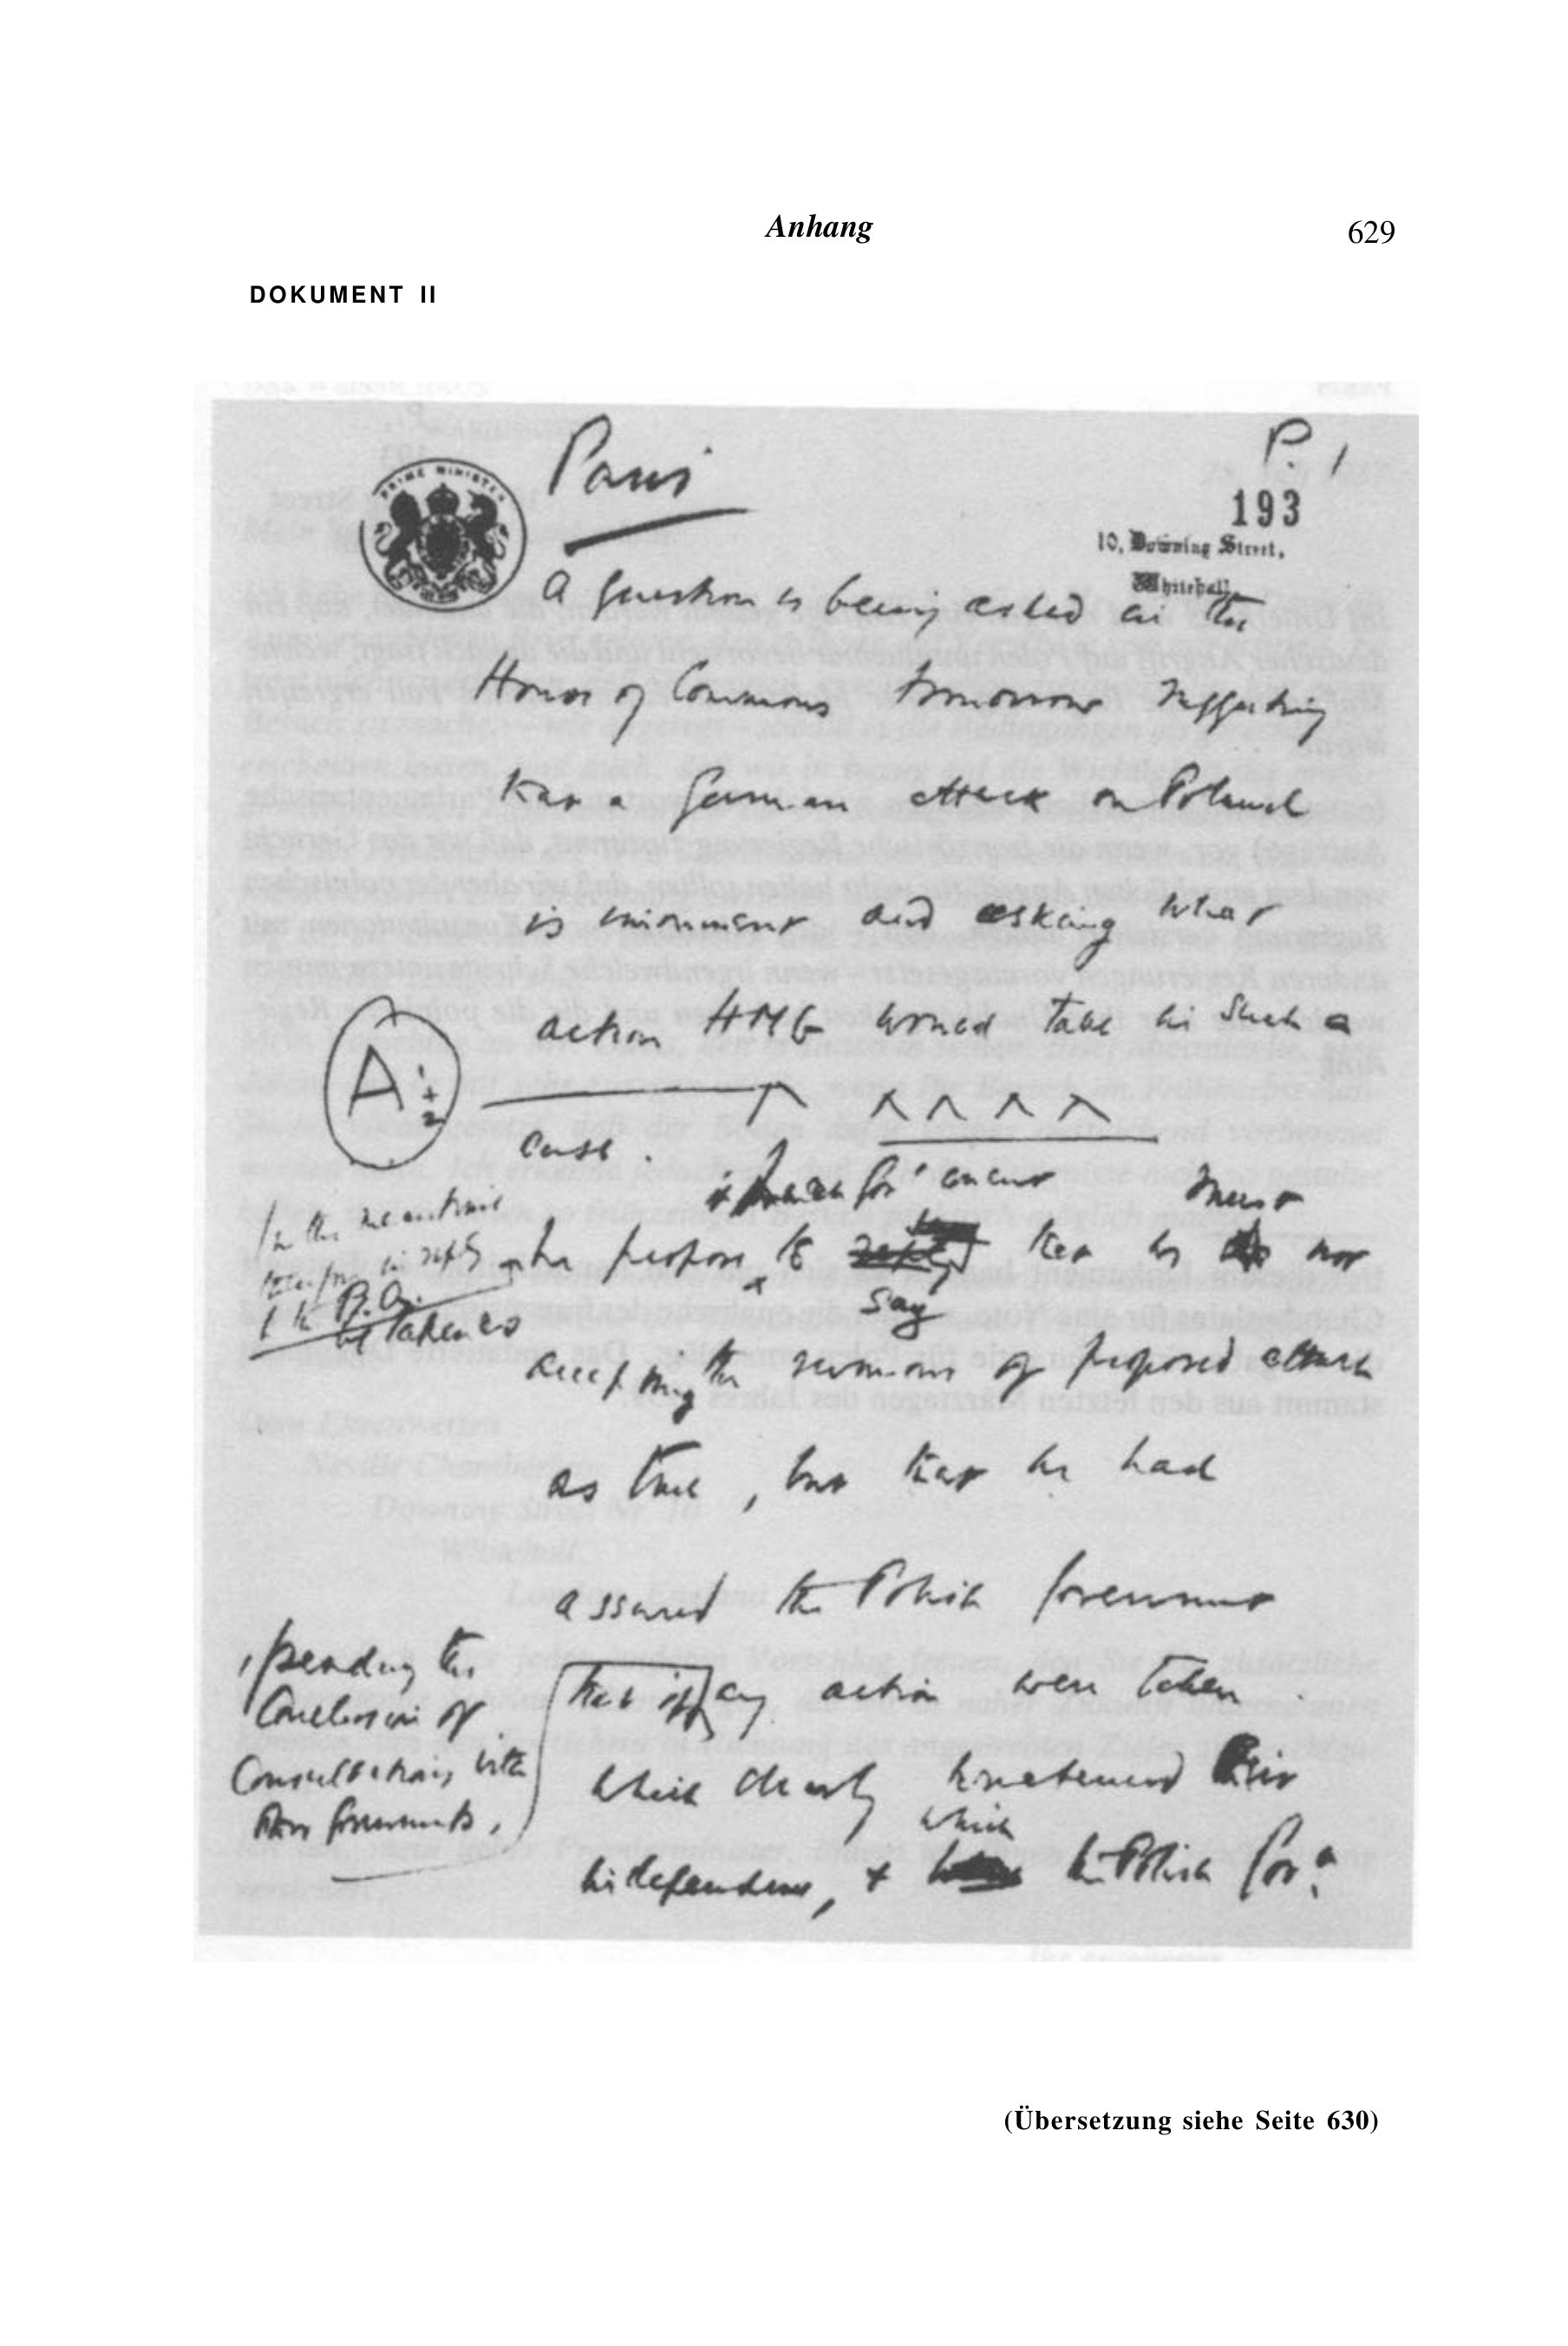 Anhang
629
DOKUMENT II
Paris
P. 1
PRIME MINISTER
193
10, Downing Street,
Whitehall.
A question is being asked in the
House of Commons tomorrow suggesting
that a German attack on Poland
is imminent and asking what
action HMG would take in such a
A 1 + 2
case.
if French Gov't concur
must
In the meantime
in reply
he propose to say that he not
P.Q.
be taken as
accepting the rumours of proposed attack
as true, but that he had
assured the Polish Government
, pending the
conclusion of
consultations with
other Governments,
that if any action were taken
which clearly threatened their
which
independence, + the Polish Gov:
(Übersetzung siehe Seite 630)